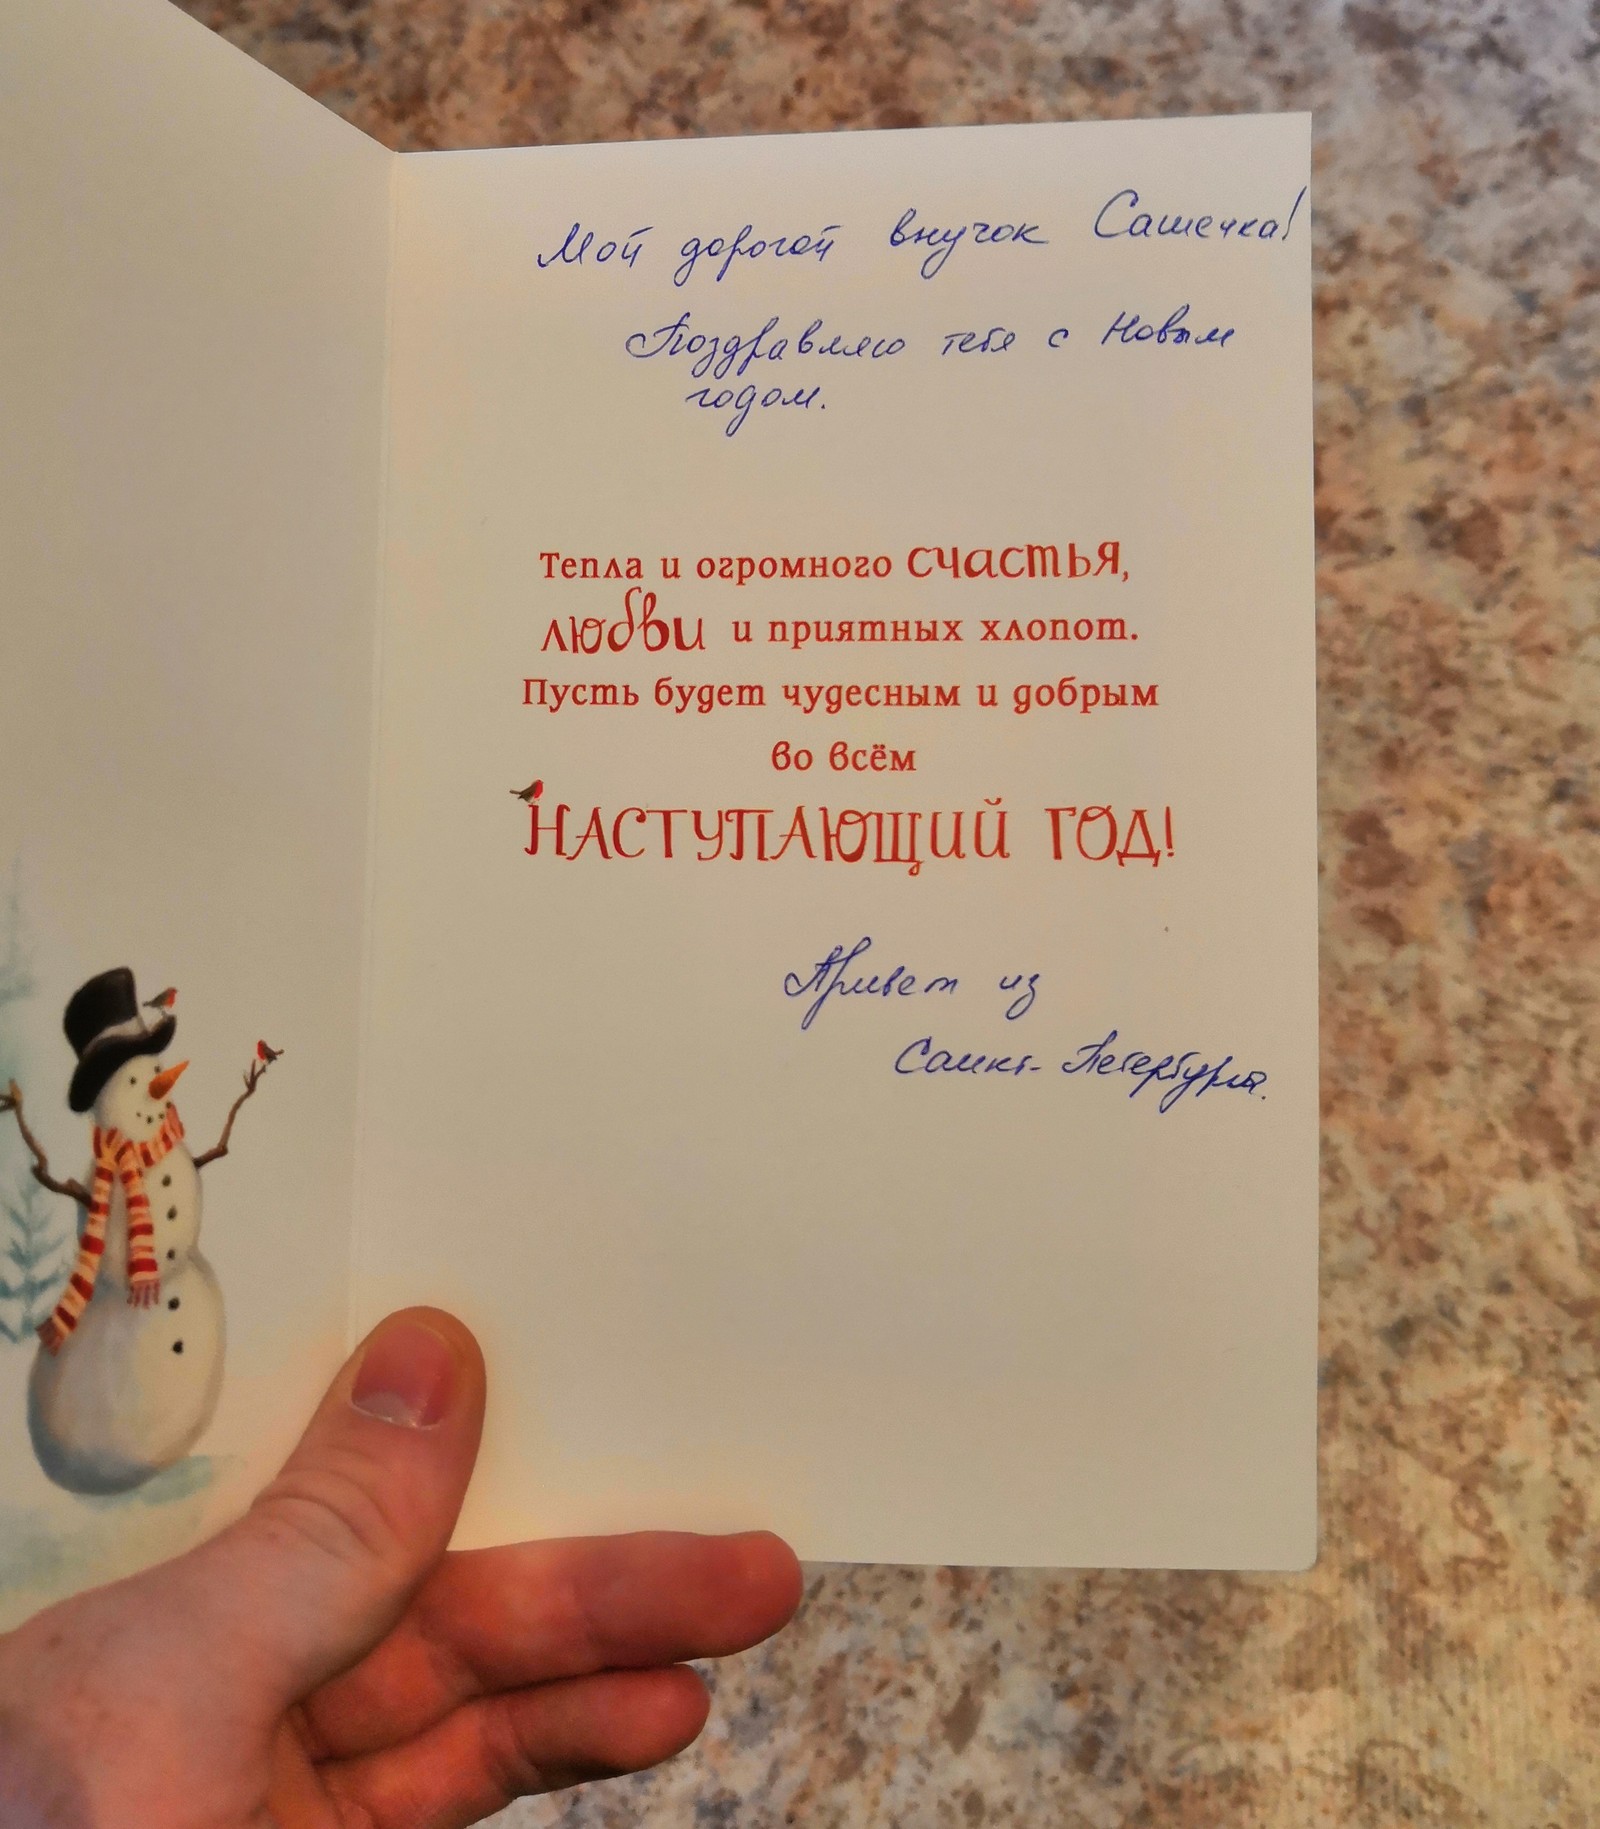 Мой дорогой внучок Сашечка!
Поздравляю тебя с Новым
годом.
Тепла и огромного счастья,
любви и приятных хлопот.
Пусть будет чудесным и добрым
во всём
НАСТУПАЮЩИЙ ГОД!
Привет из
Санкт-Петербурга.